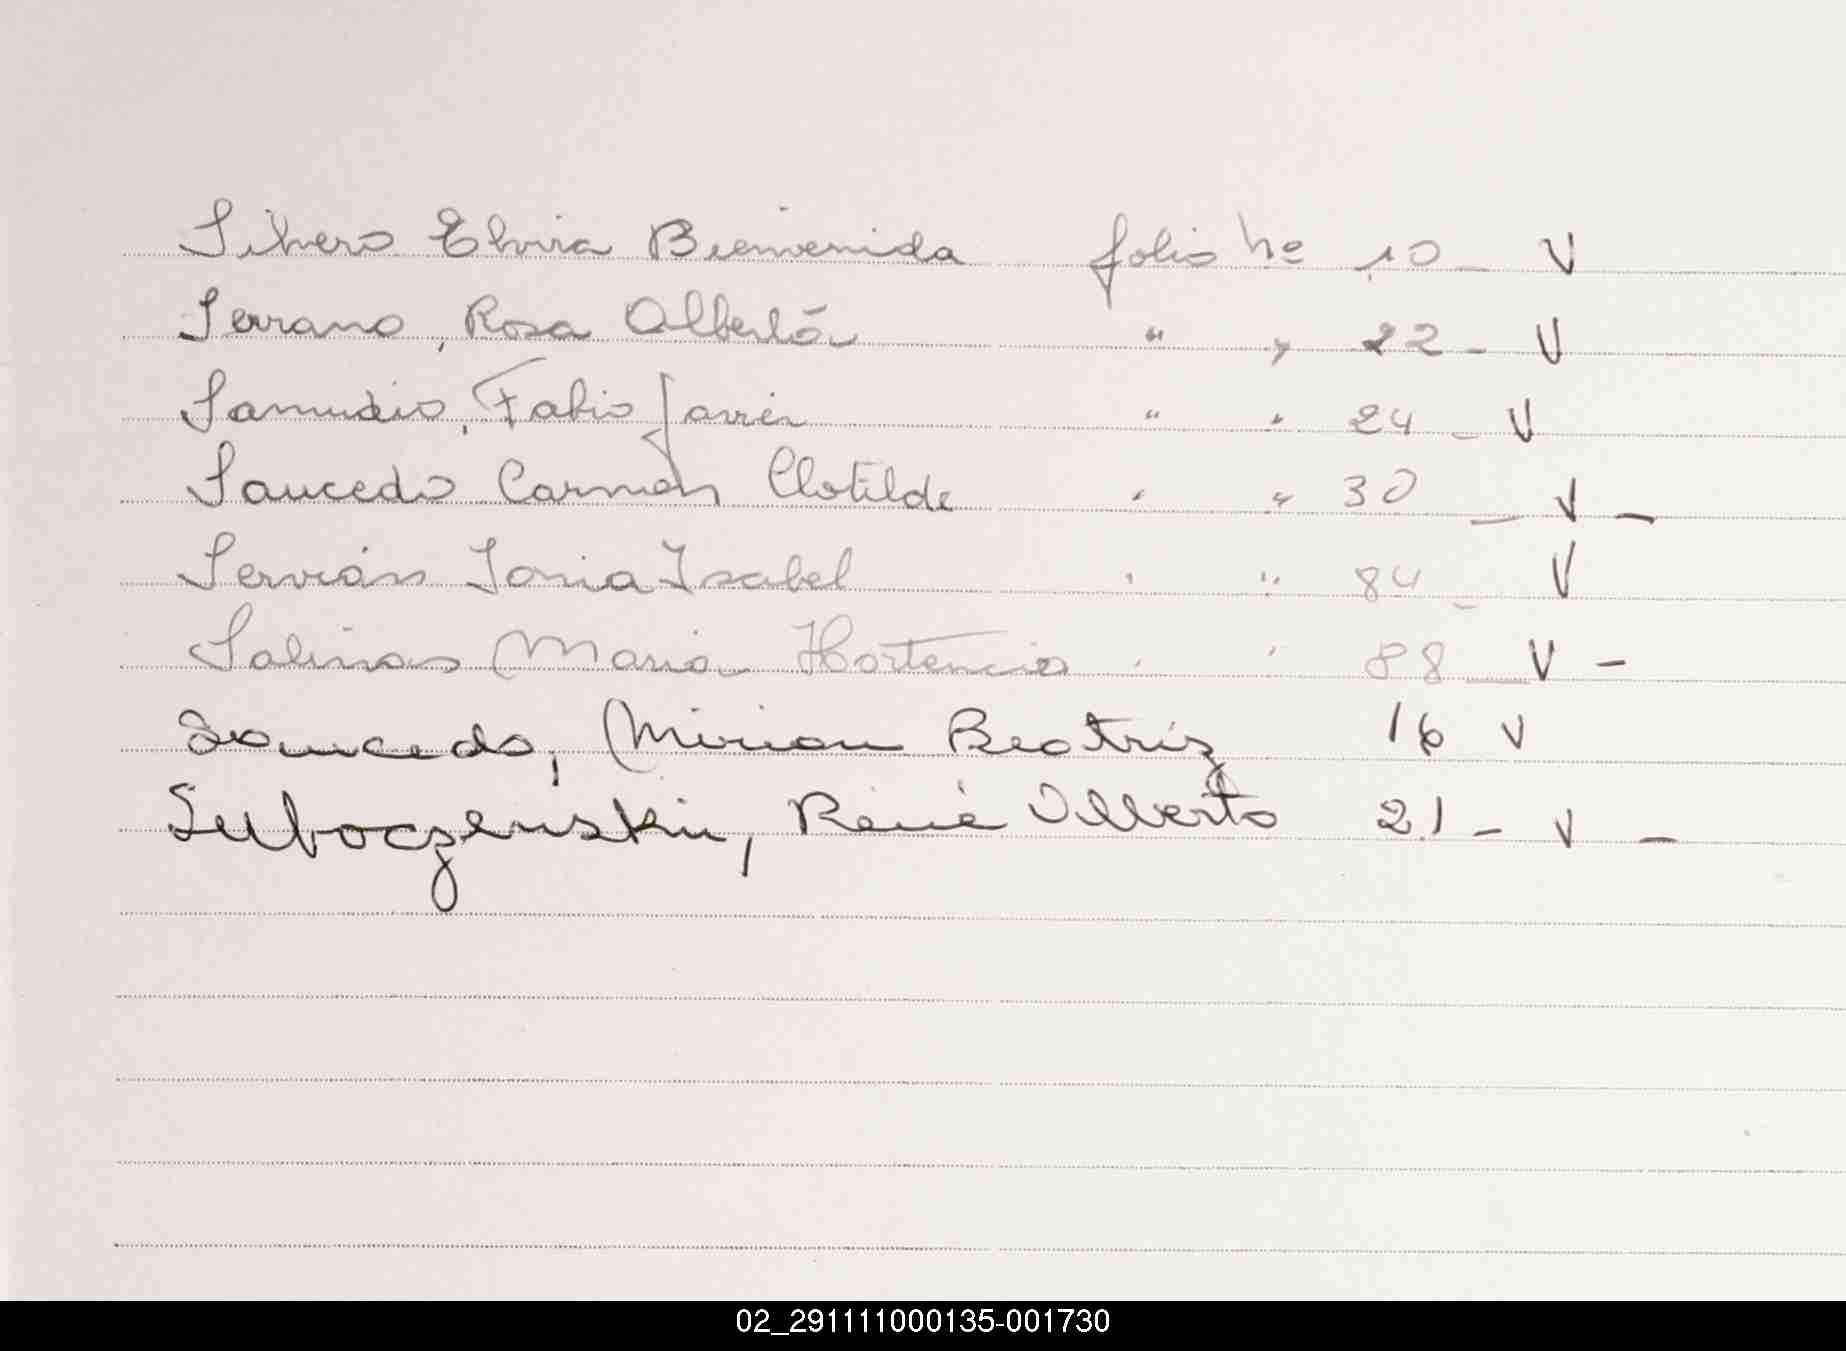 Silvero Elvira Bienvenida folio Nº 10 - V
Serrano, Rosa Alberta " " 22 - V
Samudio, Fabio Javier " " 24 - V
Saucedo Carmen Clotilde " " 30 - V -
Servián Sonia Isabel " " 84 - V
Salinas Maria Hortencia " " 88 - V -
Saucedo, Mirian Beatriz 16 V
Sulboczenskiu, René Alberto 21 - V -
02_291111000135-001730